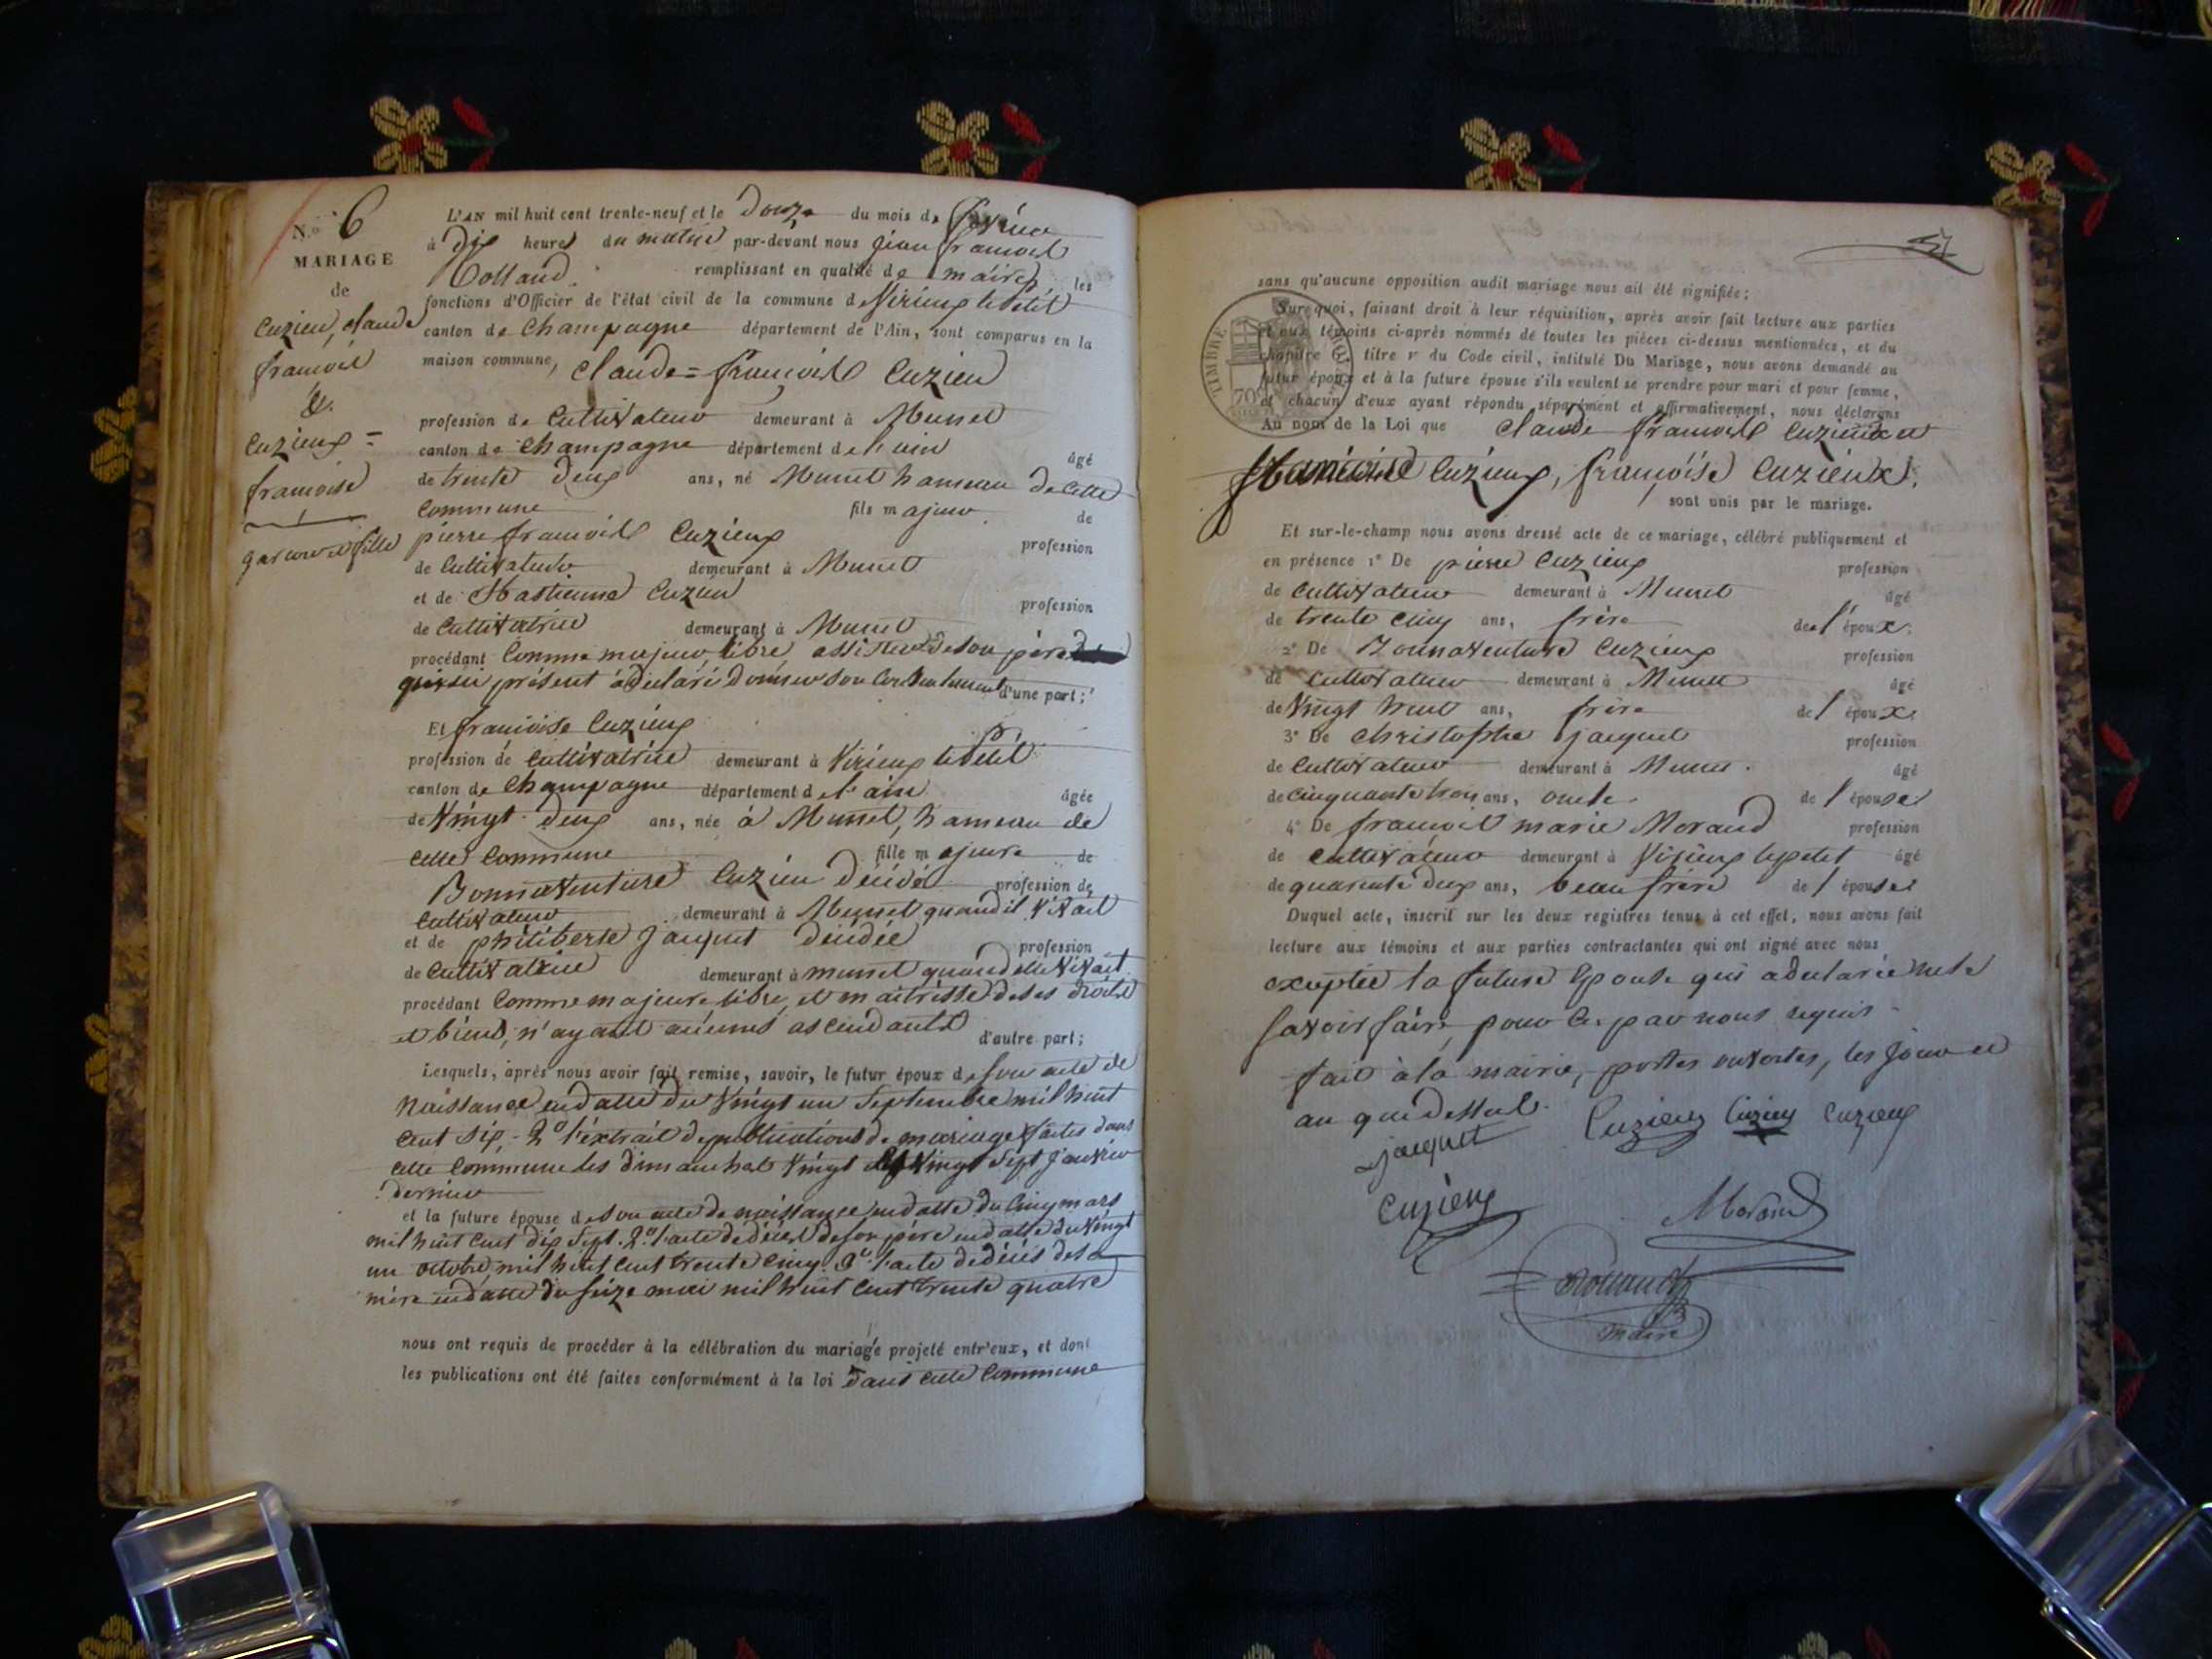 N.º 6
MARIAGE
de
Cuzieu, claude
françois
&
Cuzieux =
françoise
garçon et fille
L'AN mil huit cent trente-neuf et le douze du mois de février
à dix heures du matin par-devant nous jean françois
remplissant en qualité de maire les
fonctions d'Officier de l'état civil de la commune de Virieux le petit
canton de Champagne département de l'Ain, sont comparus en la
maison commune, claude = françois Cuzieu
profession de Cultivateur demeurant à Munet
canton de Champagne département de l'ain
âgé
de trente deux ans, né Munet hameau de cette
Commune fils majeur de
pierre françois Cuzieux profession
de Cultivateur demeurant à Munet
et de Cuzieu profession
de Cultivatrice demeurant à Munet
procédant Comme majeur, libre, assisté de son père
qui ici présent a déclaré donner son Consentement d'une part;
Et françoise Cuzieux
profession de Cultivatrice demeurant à Virieux le petit
canton de Champagne département de l'ain
âgée
de Vingt deux ans, née à Munet, hameau de
cette Commune fille majeure de
Bonnaventure Cuzieu décédé profession de
Cultivateur demeurant à Munet quand il vivait
et de philiberte jacquet décédée profession
de Cultivatrice demeurant à munet quand elle vivait
procédant Comme majeure libre, et maitresse de ses droits
et biens, n'ayant aucuns ascendants d'autre part;
Lesquels, après nous avoir fait remise, savoir, le futur époux de son acte de
Naissance en datte du Vingt un Septembre mil huit
Cent Six, 2º l'extrait de publications de mariage faites dans
cette Commune les dimanches Vingt et Vingt Sept janvier
dernier
et la future épouse de son acte de naissance en datte du Cinq mars
mil huit Cent dix Sept. 2º l'acte de décès de son père en datte du Vingt
un octobre mil huit Cent trente Cinq. 3º l'acte de décès de sa
mère en datte du Seize mai mil huit Cent trente quatre
nous ont requis de procéder à la célébration du mariage projeté entr'eux, et dont
les publications ont été faites conformément à la loi dans cette Commune
sans qu'aucune opposition audit mariage nous ait été signifiée;
Sur quoi, faisant droit à leur réquisition, après avoir fait lecture aux parties
et aux témoins ci-après nommés de toutes les pièces ci-dessus mentionnées, et du
chapitre titre v du Code civil, intitulé Du Mariage, nous avons demandé au
futur époux et à la future épouse s'ils veulent se prendre pour mari et pour femme,
et chacun d'eux ayant répondu séparément et affirmativement, nous déclarons
Au nom de la Loi que claude françois Cuzieux et
Cuzieux, françoise Cuzieux,
sont unis par le mariage.
TIMBRE ROYAL
70
Et sur-le-champ nous avons dressé acte de ce mariage, célébré publiquement et
en présence 1º De pierre Cuzieux profession
de Cultivateur demeurant à Munet âgé
de trente Cinq ans, frère de l'époux.
2º De Bonnaventure Cuzieux profession
de Cultivateur demeurant à Munet âgé
de Vingt huit ans, frère de l'époux.
3º De Christophe jacquet profession
de Cultivateur demeurant à Munet. âgé
de cinquante trois ans, oncle de l'épouse
4º De françois marie Morand profession
de Cultivateur demeurant à Virieux le petit âgé
de quarante deux ans, beau frère de l'épouse
Duquel acte, inscrit sur les deux registres tenus à cet effet, nous avons fait
lecture aux témoins et aux parties contractantes qui ont signé avec nous
exceptée la future Epouse qui a déclaré ne le
Savoir faire, pour ce par nous requis.
fait à la mairie, portes ouvertes, les jour et
an que dessus.
Cuzieux Cuzieux Cuzieux
jacquet
Cuzieux
Morand
maire